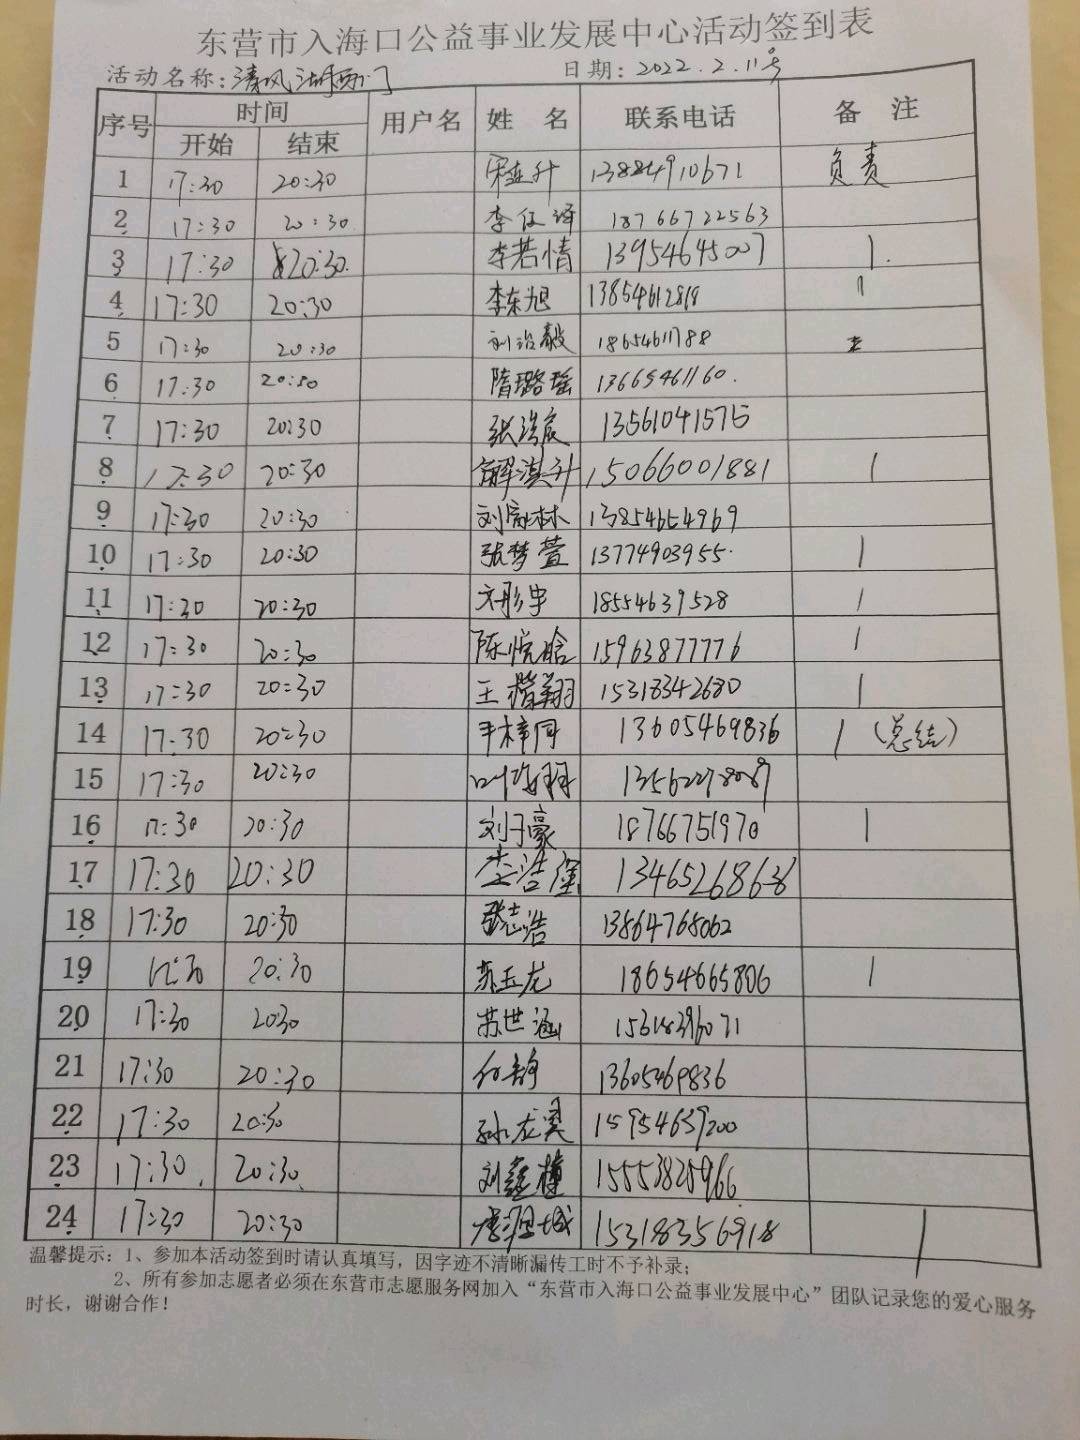 东营市入海口公益事业发展中心活动签到表
活动名称:清风湖西门 日期:2022.2.11号
序号 时间 用户名 姓 名 联系电话 备 注
开始 结束
1 17:30 20:30 宋连升 13884910671 负责
2 17:30 20:30 18766722563
3 17:30 20:30. 李若情 13954645007 1.
4 17:30 20:30 李东旭 13854612819 1
5 17:30 20:30 刘治毅 18654611788
6 17:30 20:30 隋璐瑶 13665461160.
7 17:30 20:30 张浩宸 13561041575
8 17:30 20:30 解淇升 15066001881 1
9 17:30 20:30 13854654969
10 17:30 20:30 张梦萱 13774903955. 1
11 17:30 20:30 18554639528 1
12 17:30 20:30 陈悦晗 15963877776 1
13 17:30 20:30 王楷翔 15318342680 1
14 17:30 20:30 13605469836 1(总结)
15 17:30 20:30
16 17:30 20:30 刘子豪 18766751970 1
17 17:30 20:30 13465268636
18 17:30 20:30 张志浩 13864768062
19 17:30 20:30 苏玉龙 18654665806 1
20 17:30 2030 苏世涵
21 17:30 20:30 13605469836
22 17:30 20:30 孙龙昊 15954639200
23 17:30. 20:30. 15553825966
24 17:30 20:30 15318356918 1
温馨提示:1、参加本活动签到时请认真填写,因字迹不清晰漏传工时不予补录;
2、所有参加志愿者必须在东营市志愿服务网加入“东营市入海口公益事业发展中心”团队记录您的爱心服务
时长,谢谢合作!